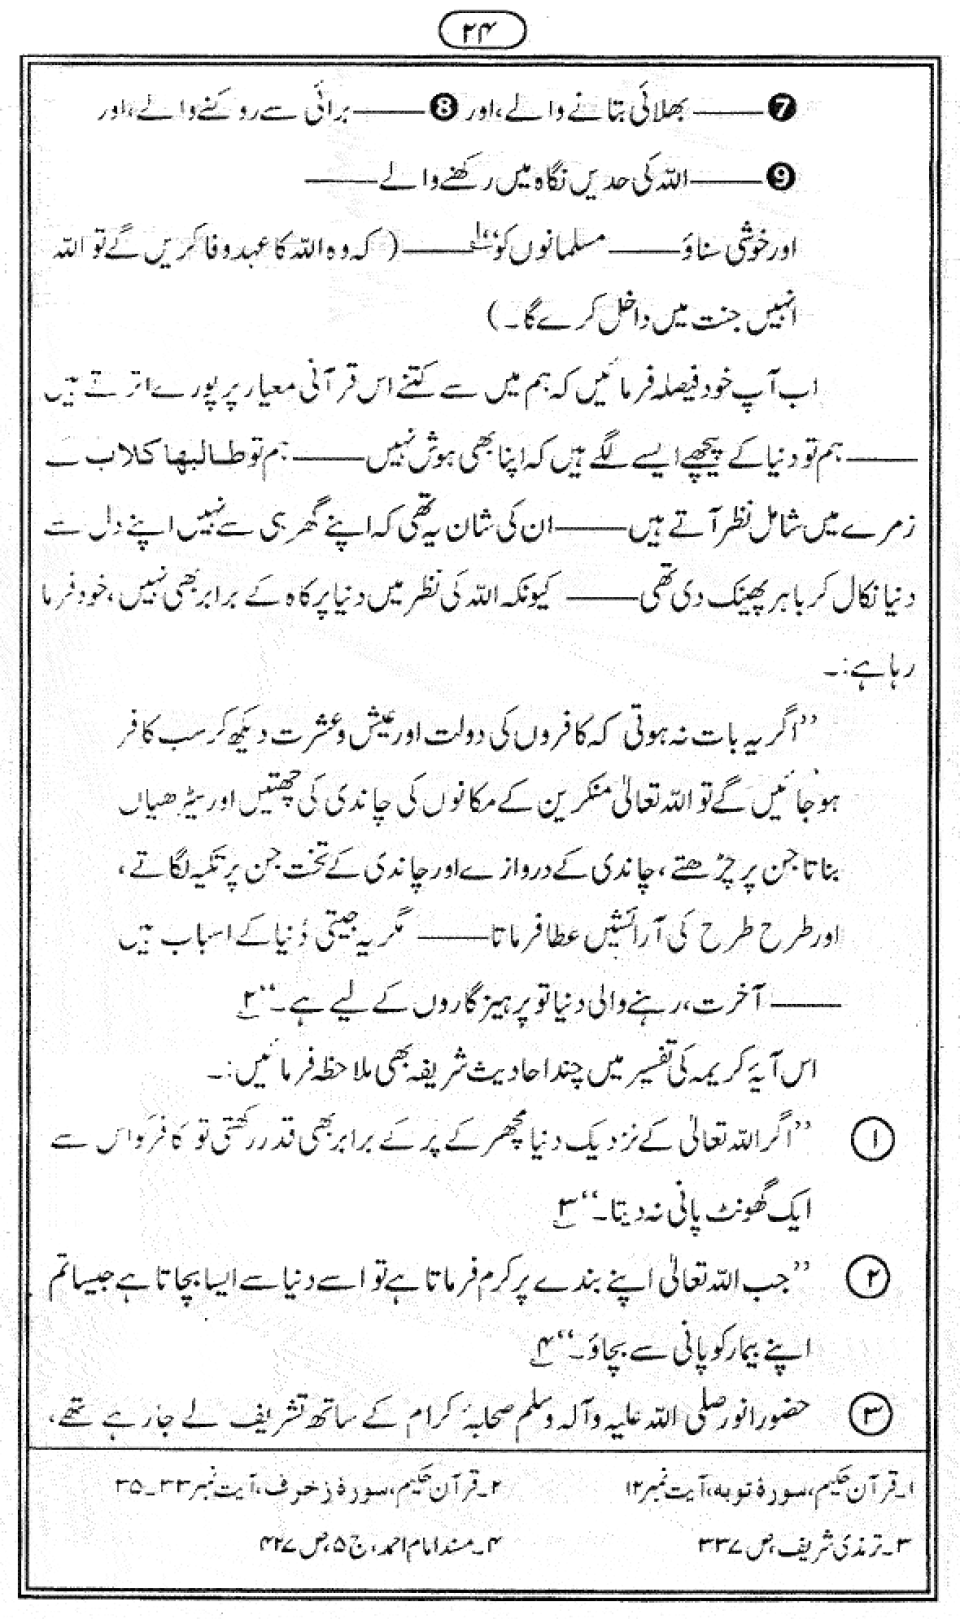 ۲۴
❼ ——— بھلائی بتانے والے، اور ❽ ——— برائی سے روکنے والے، اور
❾ ——— اللہ کی حدیں نگاہ میں رکھنے والے ———
اور خوشی سناؤ ——— مسلمانوں کو“۱ ——— ( کہ وہ اللہ کا عہد وفا کریں گے تو اللہ
انہیں جنت میں داخل کرے گا۔ )
اب آپ خود فیصلہ فرمائیں کہ ہم میں سے کتنے اس قرآنی معیار پر پورے اترتے ہیں
——— ہم تو دنیا کے پیچھے ایسے لگے ہیں کہ اپنا بھی ہوش نہیں ——— ہم تو طالبھا کلاب کے
زمرے میں شامل نظر آتے ہیں ——— ان کی شان یہ تھی کہ اپنے گھر ہی سے نہیں اپنے دل سے
دنیا نکال کر باہر پھینک دی تھی ——— کیونکہ اللہ کی نظر میں دنیا پرکاہ کے برابر بھی نہیں، خود فرما
رہا ہے:۔
”اگر یہ بات نہ ہوتی کہ کافروں کی دولت اور عیش و عشرت دیکھ کر سب کافر
ہو جائیں گے تو اللہ تعالیٰ منکرین کے مکانوں کی چاندی کی چھتیں اور سیڑھیاں
بناتا جن پر چڑھتے، چاندی کے دروازے اور چاندی کے تخت جن پر تکیہ لگاتے،
اور طرح طرح کی آرائشیں عطا فرماتا ——— مگر یہ جیتی دُنیا کے اسباب ہیں
——— آخرت، رہنے والی دنیا تو پرہیزگاروں کے لیے ہے۔“۲
اس آیۂ کریمہ کی تفسیر میں چند احادیث شریفہ بھی ملاحظہ فرمائیں:۔
۱ ”اگر اللہ تعالیٰ کے نزدیک دنیا مچھر کے پر کے برابر بھی قدر رکھتی تو کافر کو اس سے
ایک گھونٹ پانی نہ دیتا۔“۳
۲ ”جب اللہ تعالیٰ اپنے بندے پر کرم فرماتا ہے تو اسے دنیا سے ایسا بچاتا ہے جیسا تم
اپنے بیمار کو پانی سے بچاؤ۔“۴
۳ حضور انور صلی اللہ علیہ وآلہ وسلم صحابۂ کرام کے ساتھ تشریف لے جا رہے تھے،
۱۔ قرآن حکیم، سورۂ توبہ، آیت نمبر ۱۲ ۲۔ قرآن حکیم، سورۂ زخرف، آیت نمبر ۳۳۔۳۵
۳۔ ترمذی شریف، ص ۳۳۷ ۴۔ مسند امام احمد، ج ۵، ص ۴۲۷